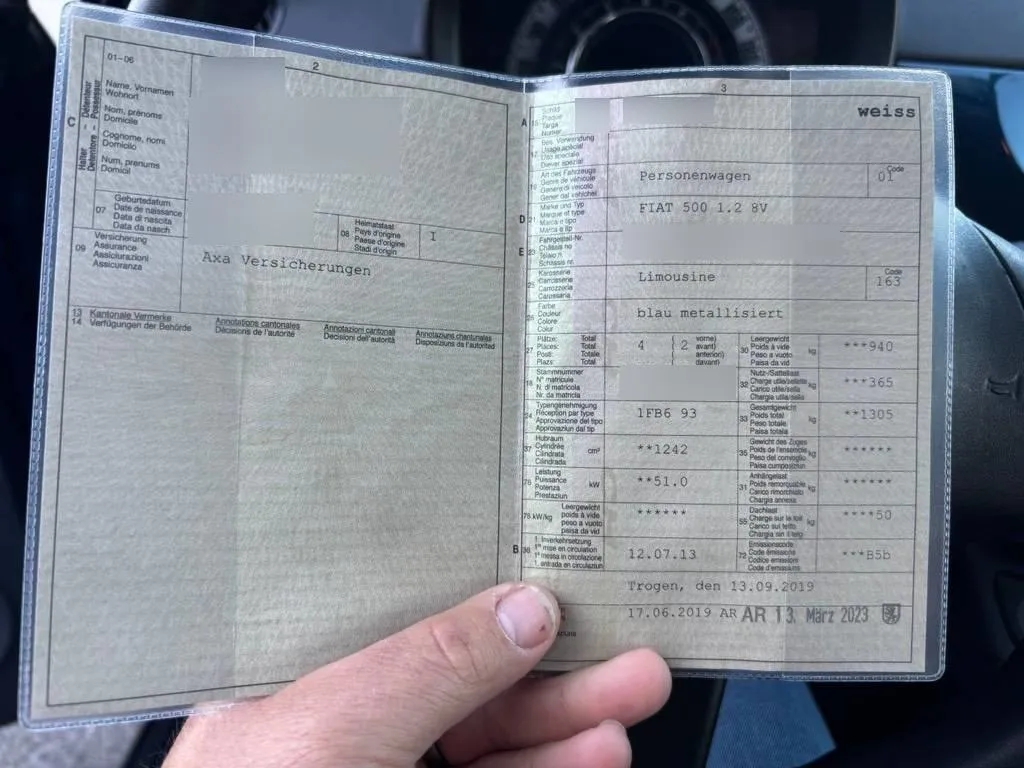 2
01-06
C
Halter - Détenteur
Detentore - Possessur
Name, Vornamen
Wohnort
Nom, prénoms
Domicile
Cognome, nomi
Domicilio
Num, prenums
Domicil
07
Geburtsdatum
Date de naissance
Data di nascita
Data da nasch
08
Heimatstaat
Pays d'origine
Paese d'origine
Stadi d'origin
I
09
Versicherung
Assurance
Assicurazioni
Assicuranza
Axa Versicherungen
13 Kantonale Vermerke
14 Verfügungen der Behörde
Annotations cantonales
Décisions de l'autorité
Annotazioni cantonali
Decisioni dell'autorità
Annotaziuns chantunalas
Disposiziuns da l'autoritad
3
A 15
Schild
Plaque
Targa
Numer
weiss
17
Bes. Verwendung
Usage spécial
Uso speciale
Diever spezial
19
Art des Fahrzeugs
Genre de véhicule
Genere di veicolo
Gener dal vehichel
Personenwagen
Code
01
D 21
Marke und Typ
Marque et type
Marca e tipo
Marca e tip
FIAT 500 1.2 8V
E 23
Fahrgestell-Nr.
Châssis no
Telaio n.
Schassis nr.
25
Karosserie
Carrosserie
Carrozzeria
Carossaria
Limousine
Code
163
26
Farbe
Couleur
Colore
Colur
blau metallisiert
27
Plätze: Total
Places: Total
Posti: Totale
Plazs: Total
4 ( 2 vorne)
avant)
anteriori)
davant)
30
Leergewicht
Poids à vide
Peso a vuoto
Paisa da vid
kg
***940
18
Stammnummer
N° matricule
N. di matricola
Nr. da matricla
32
Nutz-/Sattellast
Charge utile/sellette
Carico utile/sella
Chargia utila/sella
kg
***365
24
Typengenehmigung
Réception par type
Approvazione del tipo
Approvaziun dal tip
1FB6 93
33
Gesamtgewicht
Poids total
Peso totale
Paisa totala
kg
**1305
37
Hubraum
Cylindrée
Cilindrata
Cilindrada
cm³
**1242
35
Gewicht des Zuges
Poids de l'ensemble
Peso del convoglio
Paisa cumposiziun
kg
******
76
Leistung
Puissance
Potenza
Prestaziun
kW
**51.0
31
Anhängelast
Poids remorquable
Carico rimorchiato
Chargia annexa
kg
******
78 kW/kg
Leergewicht
poids à vide
peso a vuoto
paisa da vid
******
55
Dachlast
Charge sur le toit
Carico sul tetto
Chargia sin il tetg
kg
****50
B 36
1. Inverkehrsetzung
1re mise en circulation
1a messa in circolazione
1. entrada en circulaziun
12.07.13
72
Emissionscode
Code émissions
Codice emissioni
Code d'emissiuns
***B5b
Trogen, den 13.09.2019
17.06.2019 AR AR 13. März 2023